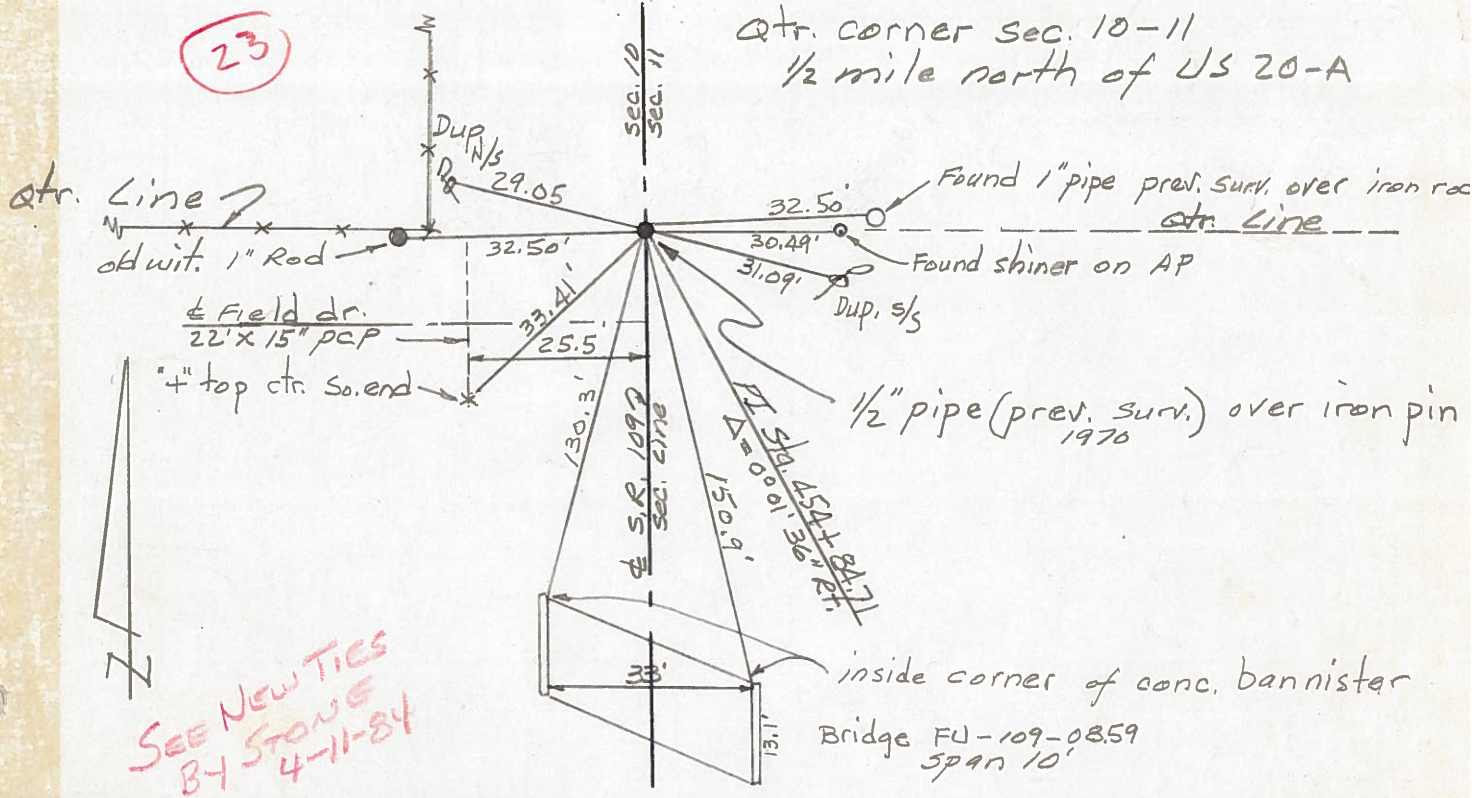 23
Qtr. corner sec. 10-11
1/2 mile north of US 20-A
sec. 10
sec. 11
Dup. N/S
29.05
Qtr. Line
32.50'
Found 1" pipe prev. surv. over iron rod
Qtr. Line
old wit. 1" Rod
32.50'
30.49'
Found shiner on AP
31.09'
Dup. S/S
33.41'
℄ Field dr.
22' x 15" PCP
25.5'
"+" top ctr. So. end
1/2" pipe (prev. surv.) over iron pin
1970
130.3'
℄ S.R. 109
sec. Line
150.9'
PI Sta. 454+84.71
Δ = 0°01'36" Rt.
N
33'
inside corner of conc. bannister
13.1'
Bridge FU-109-08.59
Span 10'
SEE NEW TIES
BY STONE
4-11-84